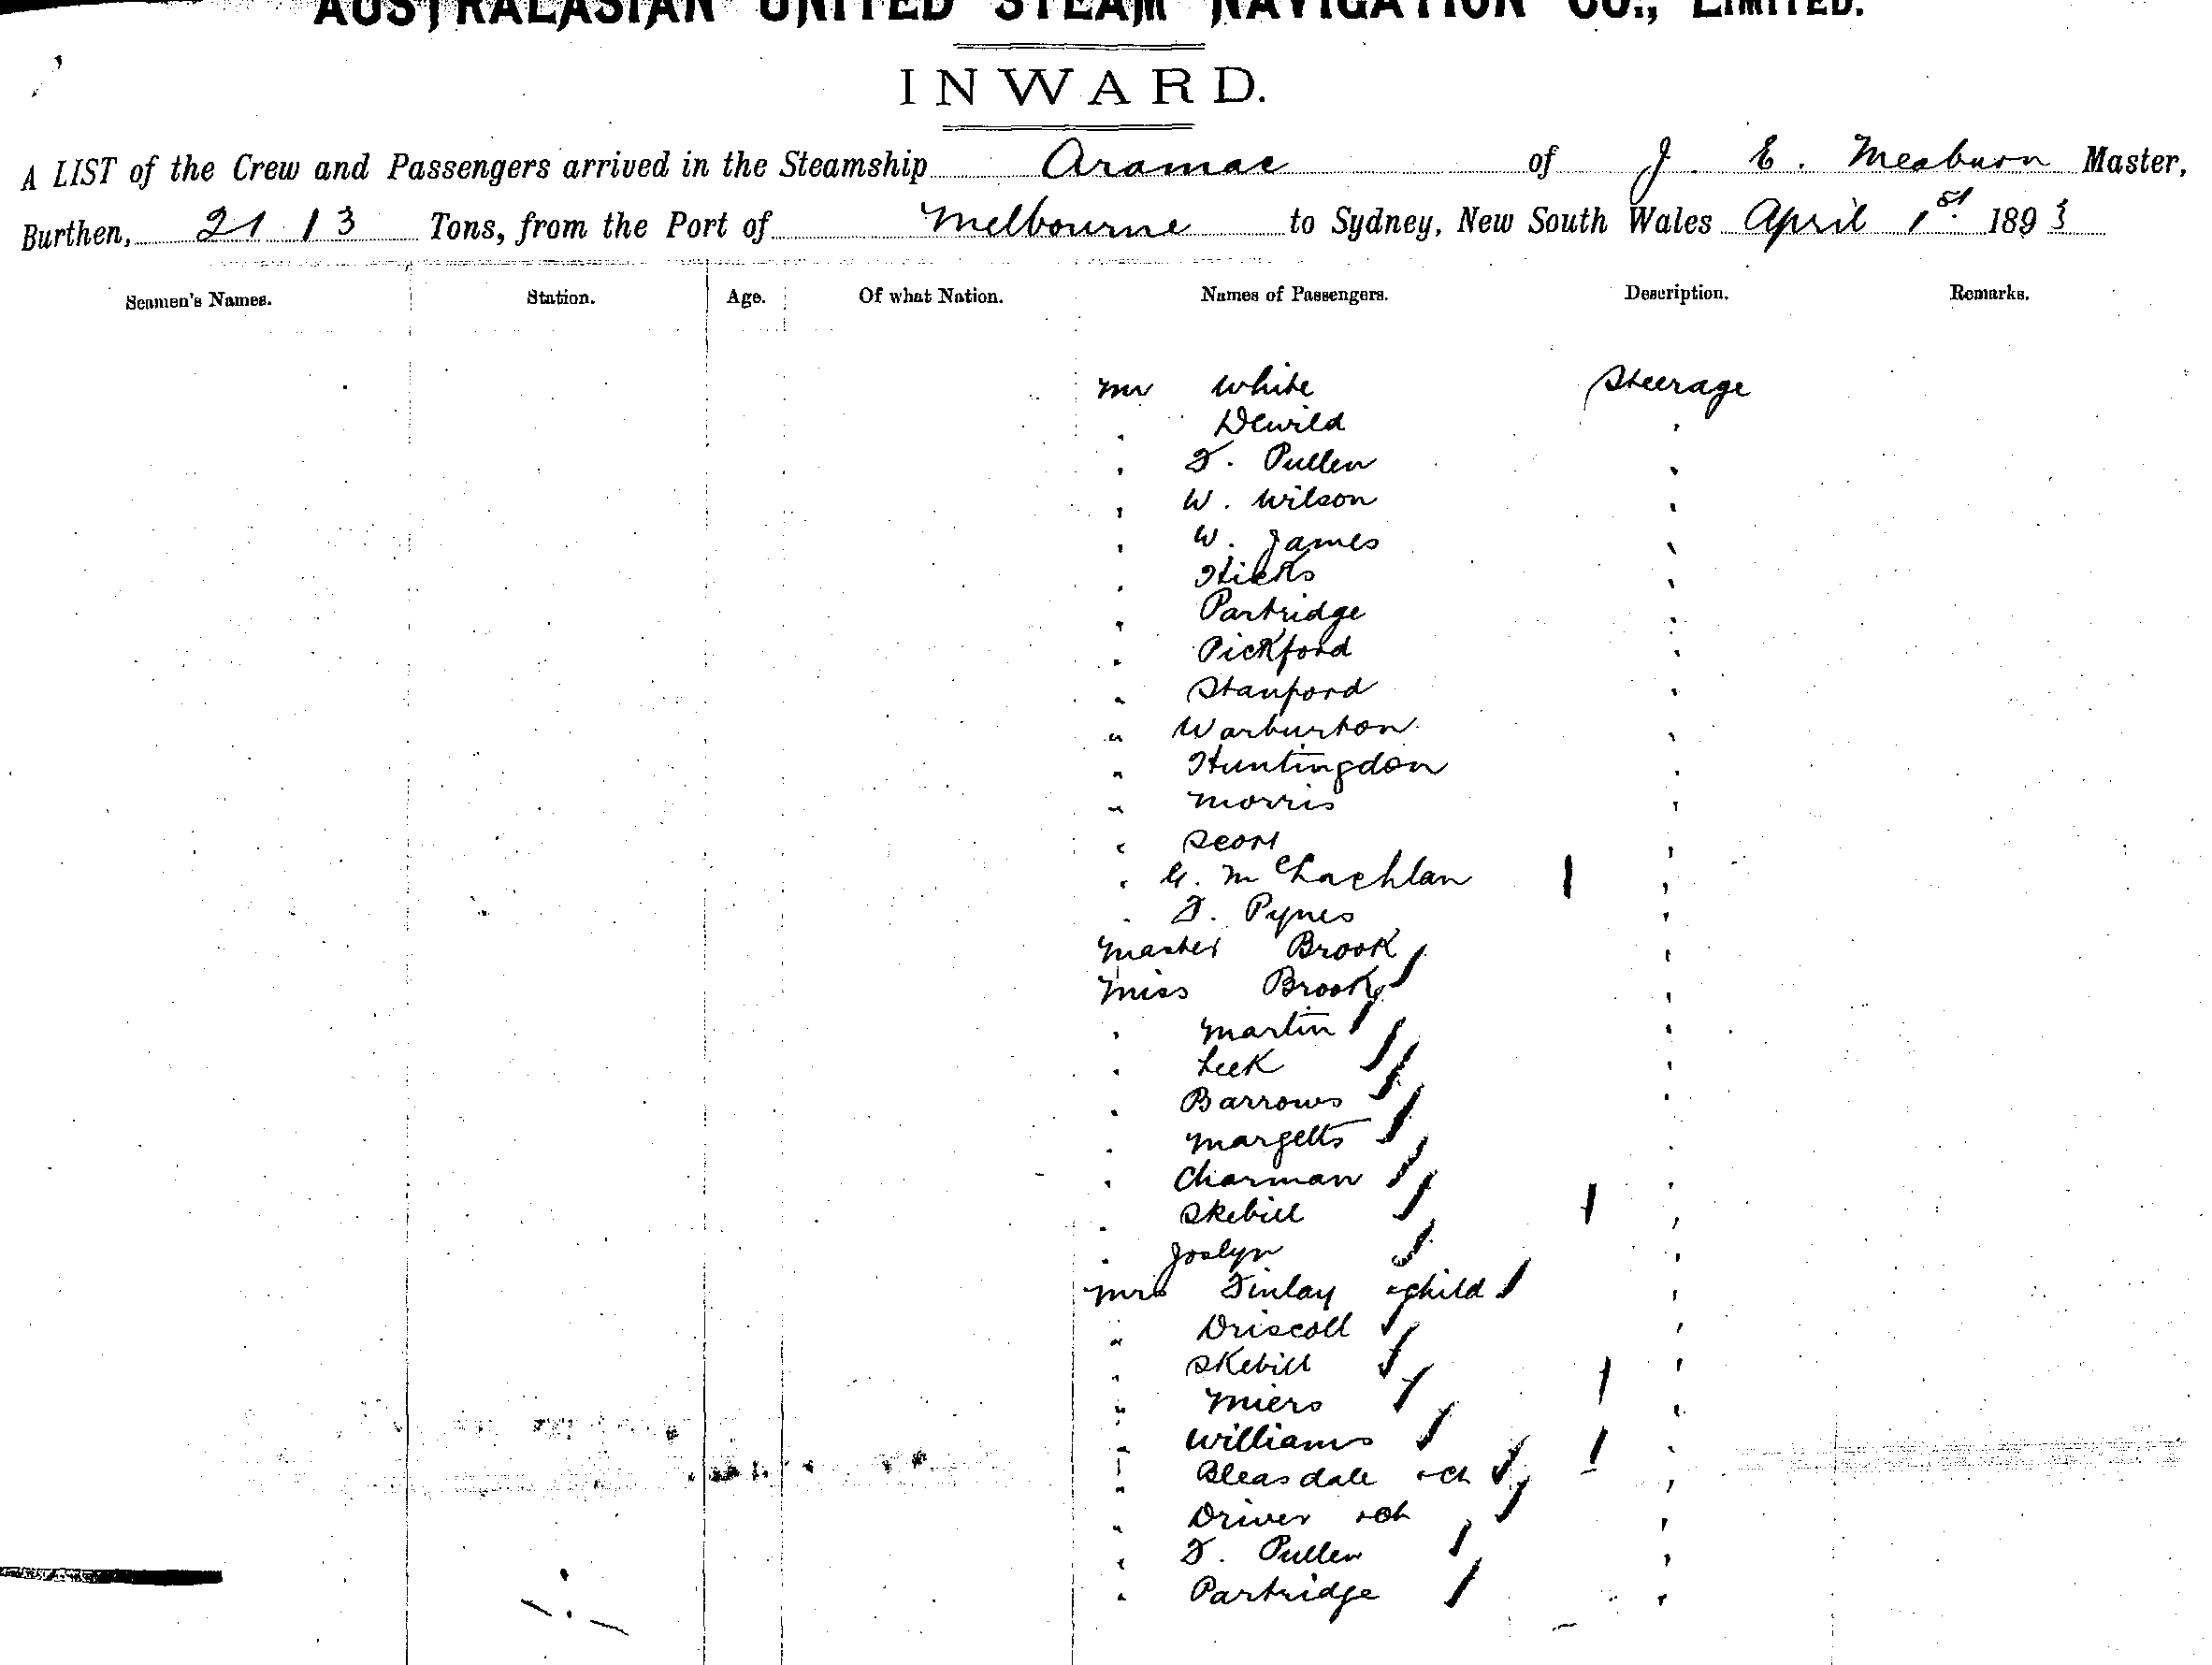 AUSTRALASIAN UNITED STEAM NAVIGATION CO., LIMITED.
INWARD.
A LIST of the Crew and Passengers arrived in the Steamship Aramac of J. E. Meaburn Master,
Burthen, 2113 Tons, from the Port of Melbourne to Sydney, New South Wales April 1st 1893
Seamen's Names. Station. Age. Of what Nation. Names of Passengers. Description. Remarks.
Mr White Steerage
" Dewild "
" F. Pullen "
" W. Wilson "
" W. James "
" Hicks "
" Partridge "
" Pickford "
" Stanford "
" Warburton "
" Huntingdon "
" Morris "
" Scott "
" G. McLachlan "
" F. Pynes "
Master Brook "
Miss Brook "
" Martin "
" Leek "
" Barrows "
" Margetts "
" Charman "
" Skebill "
" Joslyn "
Mrs Finlay & child "
" Driscoll "
" Skebill "
" Miers "
" Williams "
" Bleasdale & ch "
" Driver & ch "
" F. Pullen "
" Partridge "